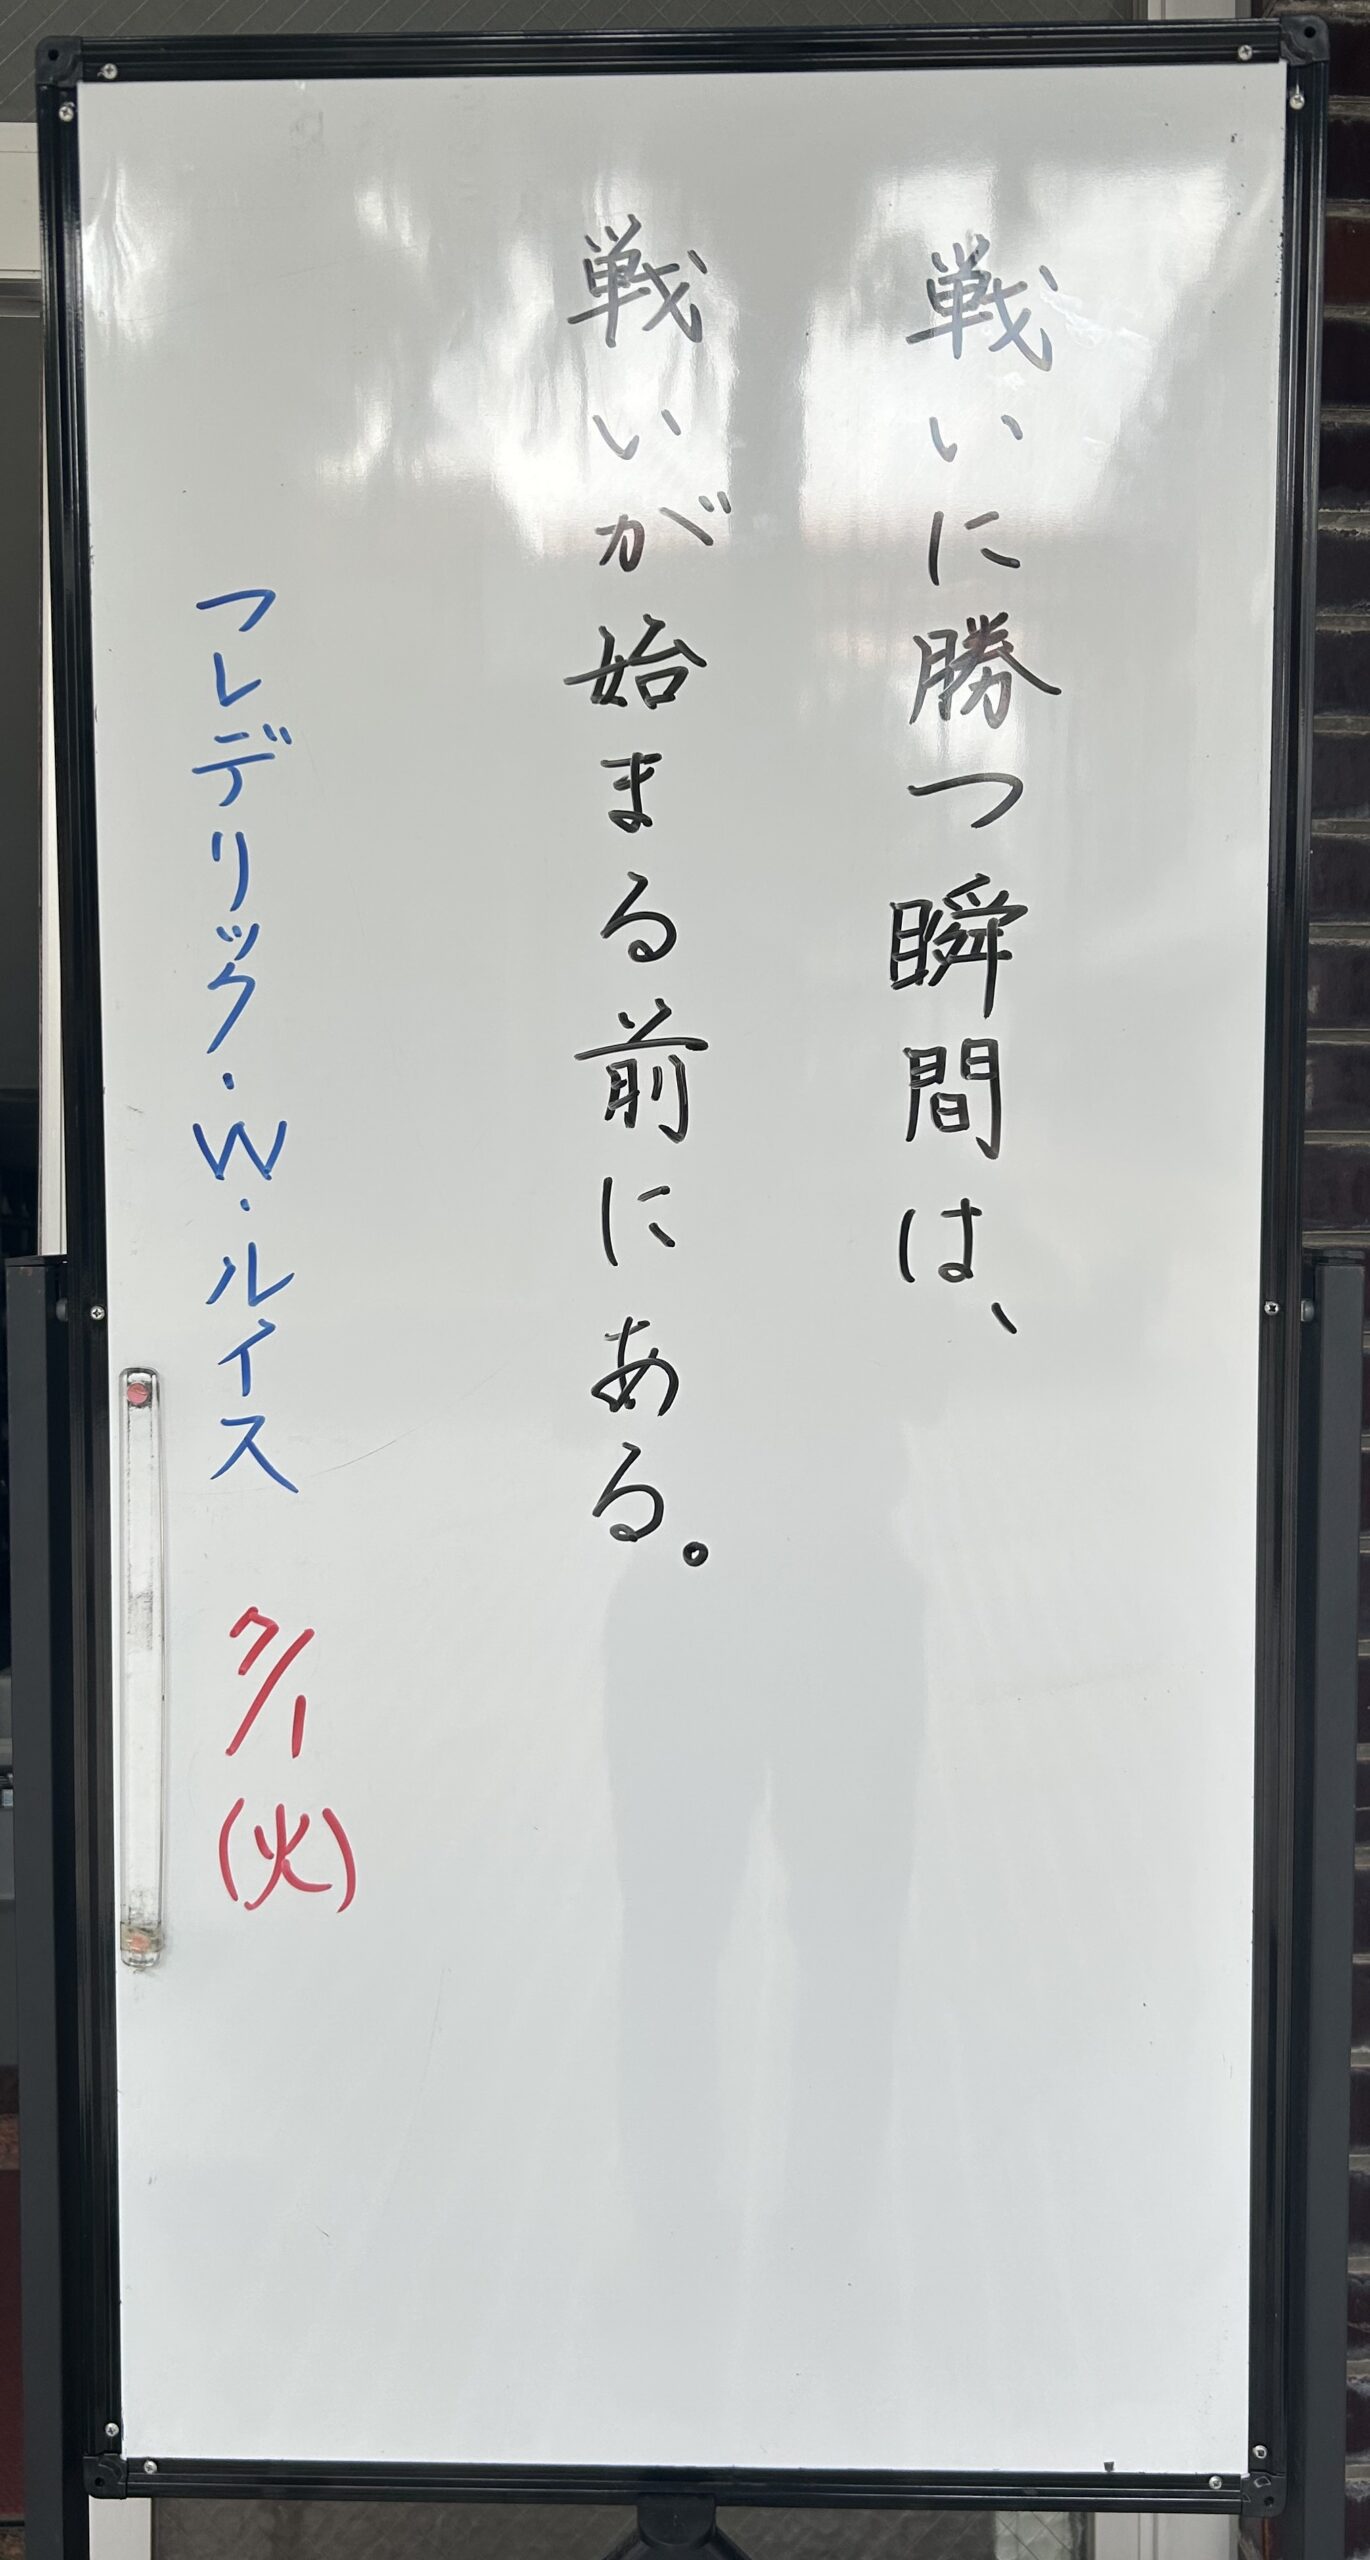 戦いに勝つ瞬間は、
戦いが始まる前にある。
フレデリック・W・ルイス 7/1(火)